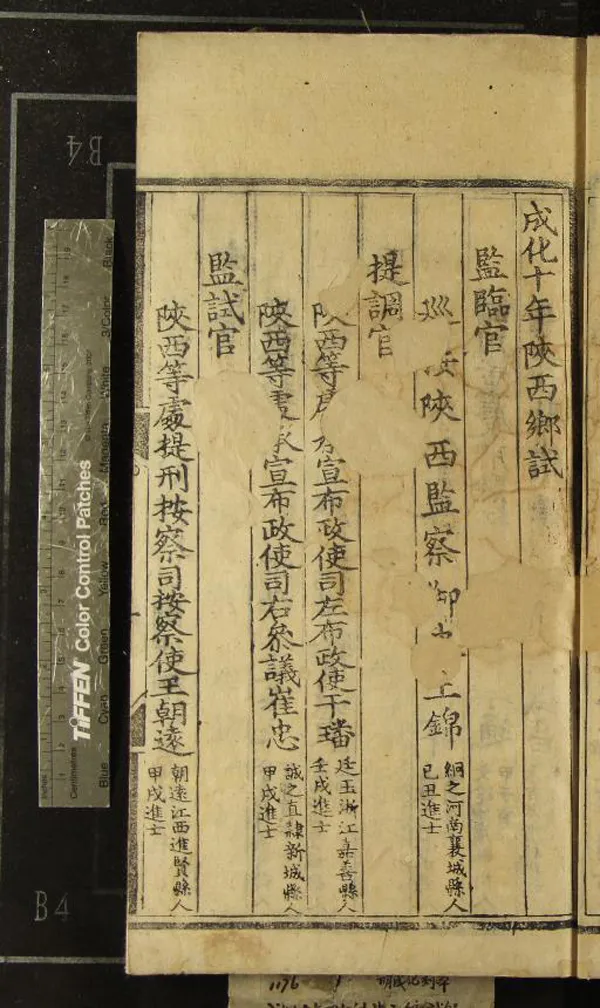 成化十年陝西鄉試
監臨官
巡 按陝西監察御史 錦 絅之河南襄城縣人
己丑進士
提調官
陝西等處 宣布政使司左布政使于璠 廷玉浙江嘉善縣人
壬戌進士
陝西等處承宣布政使司右叅議崔忠 誠之直隸新城縣人
甲戌進士
監試官
陝西等處提刑按察司按察使王朝遠 朝遠江西進賢縣人
甲戌進士
TIFFEN Color Control Patches
Blue Cyan Green Yellow Red Magenta White 3/Color Black
Inches
Centimetres
B4
B4
1176